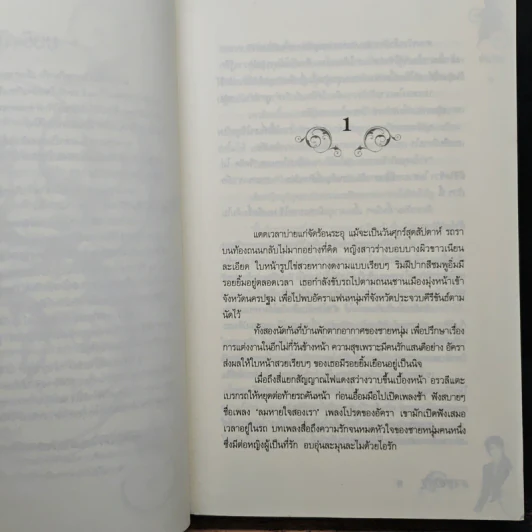 1
แดดเวลาบ่ายแก่จัดร้อนระอุ แม้จะเป็นวันศุกร์สุดสัปดาห์ รถรา
บนท้องถนนกลับไม่มากอย่างที่คิด หญิงสาวร่างบอบบางผิวขาวเนียน
ละเอียด ใบหน้ารูปไข่สวยหวานงดงามแบบเรียบๆ ริมฝีปากสีชมพูอิ่มมี
รอยยิ้มอยู่ตลอดเวลา เธอกำลังขับรถไปตามถนนชานเมืองมุ่งหน้าเข้า
จังหวัดนครปฐม เพื่อไปพบอัคราแฟนหนุ่มที่จังหวัดประจวบคีรีขันธ์ตาม
นัดไว้
ทั้งสองนัดกันที่บ้านพักตากอากาศของชายหนุ่ม เพื่อปรึกษาเรื่อง
การแต่งงานในอีกไม่กี่วันข้างหน้า ความสุขเพราะมีคนรักแสนดีอย่าง อัครา
ส่งผลให้ใบหน้าสวยเรียบๆ ของเธอมีรอยยิ้มเยือนอยู่เป็นนิจ
เมื่อถึงสี่แยกสัญญาณไฟแดงสว่างวาบขึ้นเบื้องหน้า อรวลีแตะ
เบรกรถให้หยุดต่อท้ายรถคันหน้า ก่อนเอื้อมมือไปเปิดเพลงช้า ฟังสบายๆ
ชื่อเพลง 'ลมหายใจสองเรา' เพลงโปรดของอัครา เขามักเปิดฟังเสมอ
เวลาอยู่ในรถ บทเพลงสื่อถึงความรักจนหมดหัวใจของชายหนุ่มคนหนึ่ง
ซึ่งมีต่อหญิงผู้เป็นที่รัก อบอุ่นละมุนละไมด้วยไอรัก